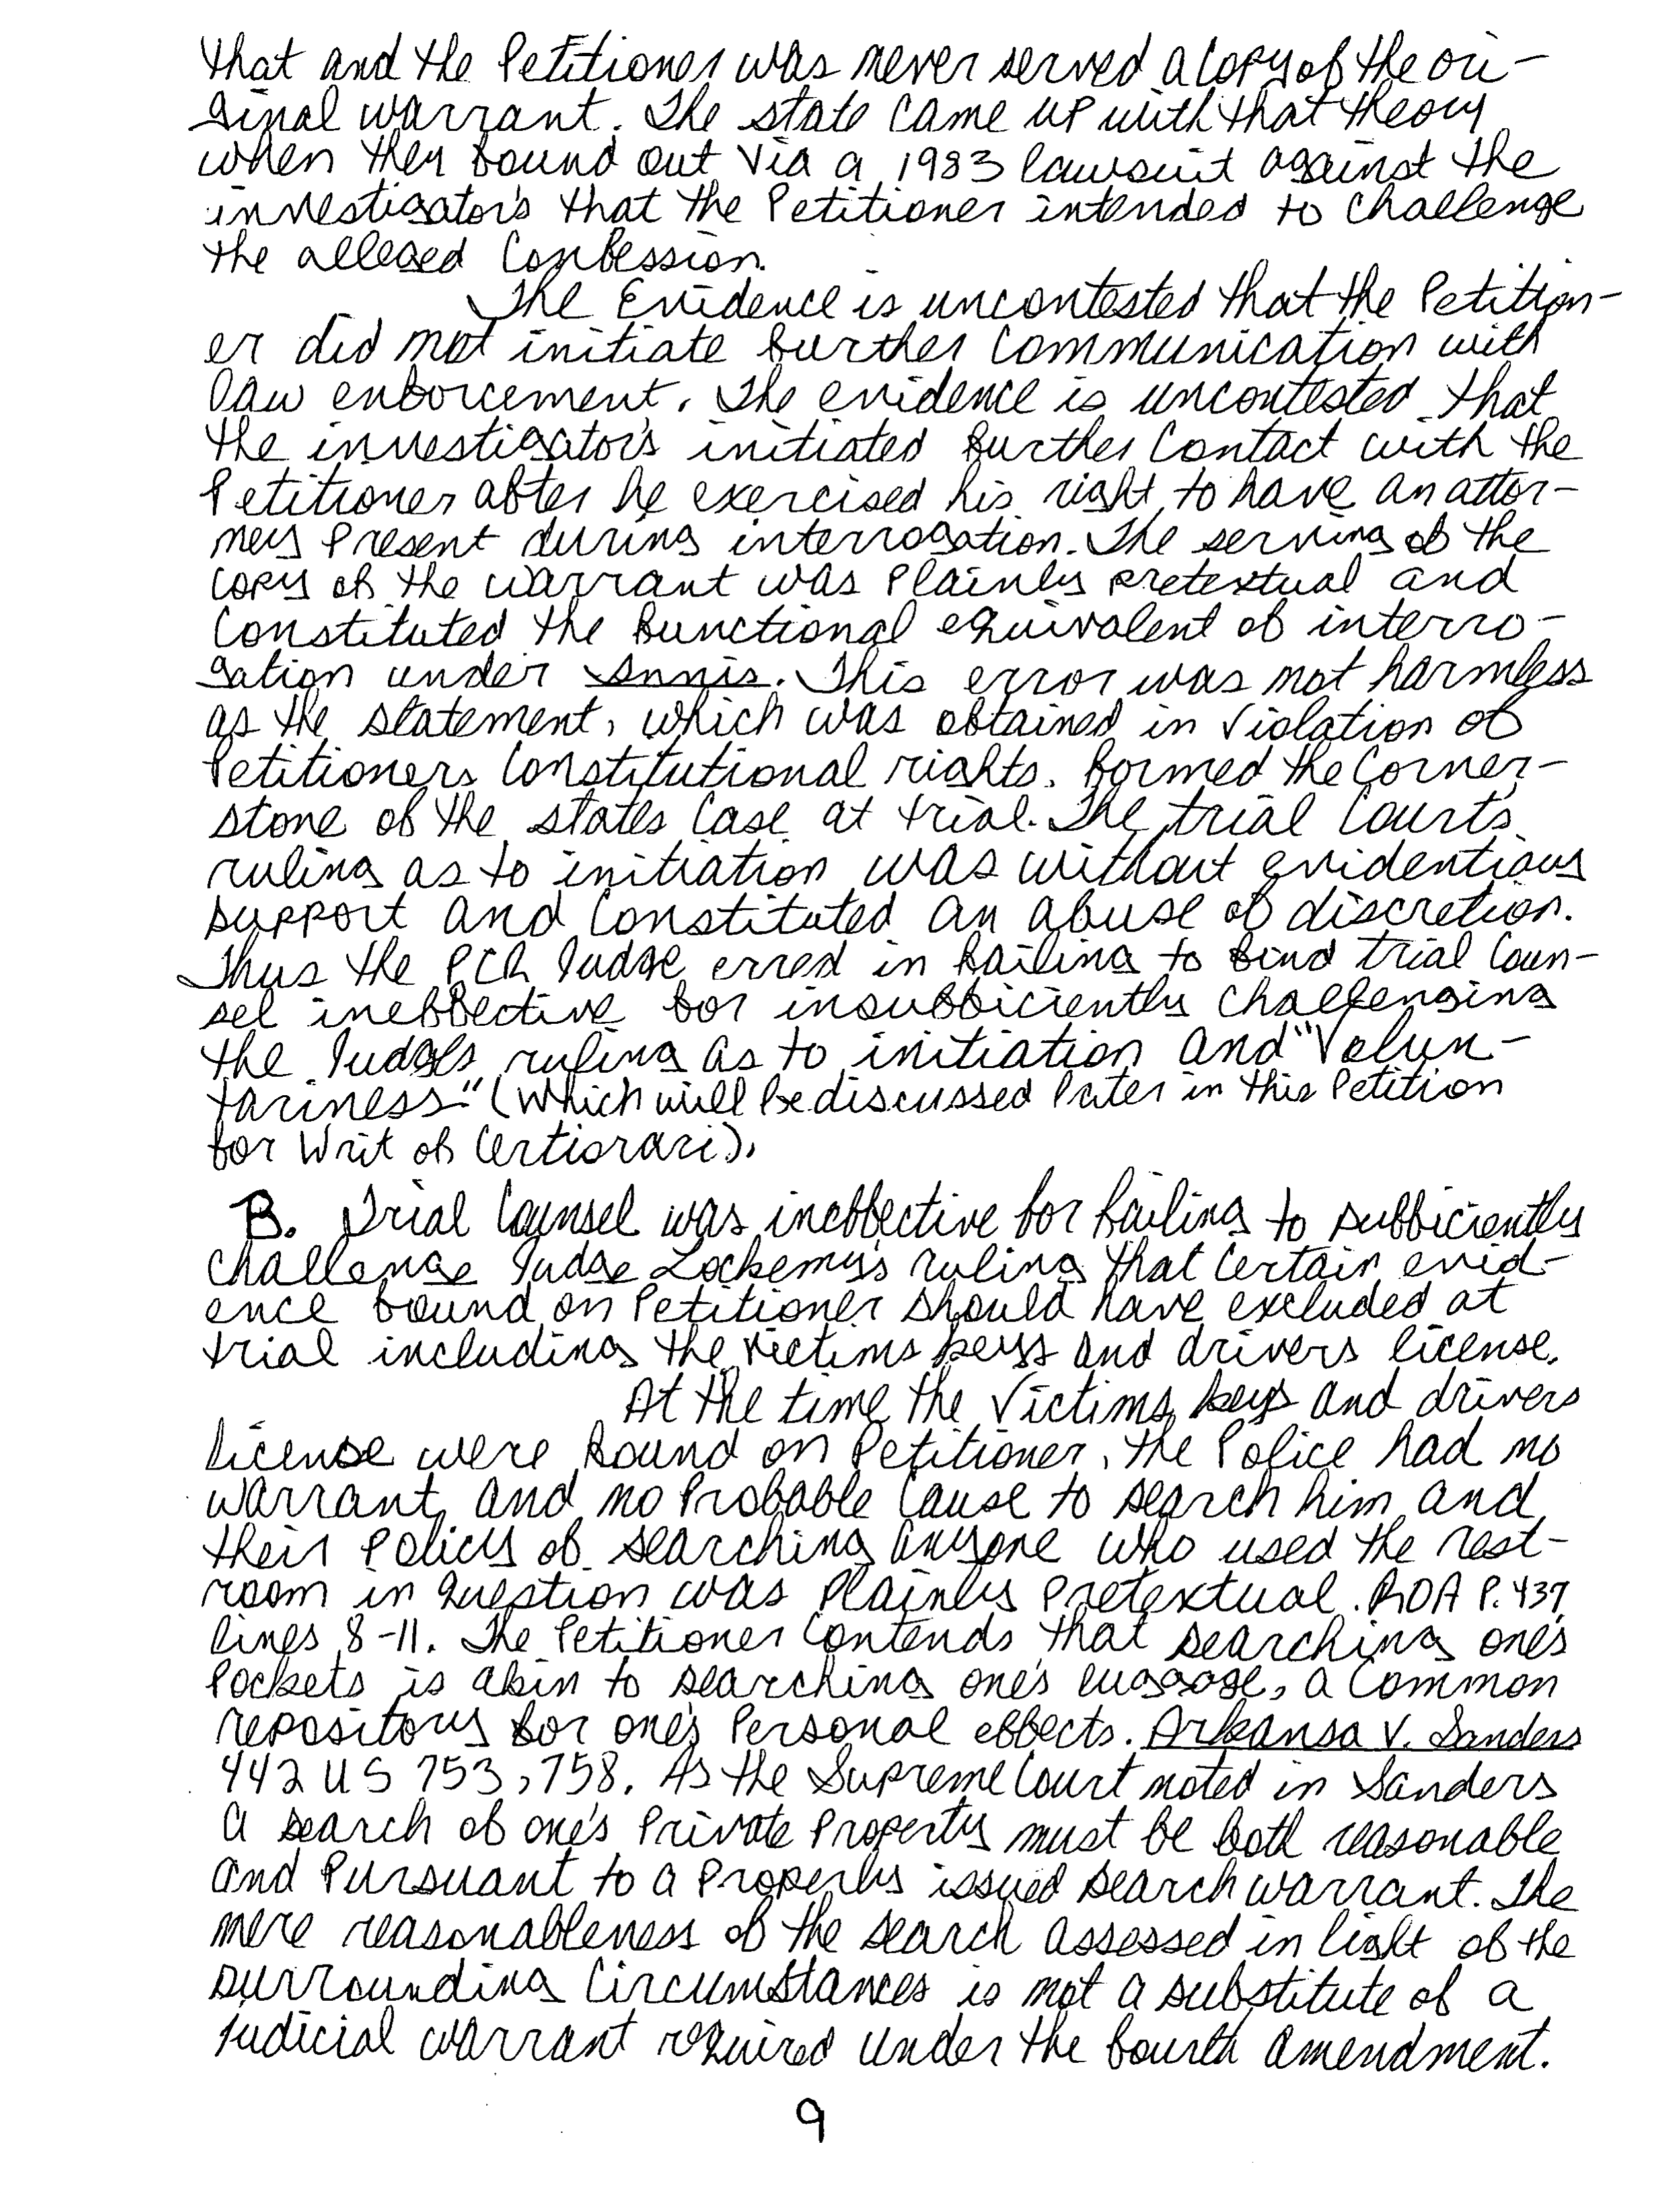 that and the Petitioner was never served a copy of the ori-
ginal warrant. The state came up with that theory
when they found out via a 1983 lawsuit against the
investigator's that the Petitioner intended to challenge
the alleged Confession.
The Evidence is uncontested that the Petition-
er did not initiate further communication with
law enforcement. The evidence is uncontested that
the investigator's initiated further contact with the
Petitioner after he exercised his right to have an attor-
ney present during interrogation. The serving of the
copy of the warrant was plainly pretextual and
Constituted the functional equivalent of interro-
gation under Innis. This error was not harmless
as the statement, which was obtained in violation of
Petitioners Constitutional rights, formed the Corner-
stone of the states case at trial. The trial courts
ruling as to initiation was without evidentiary
support and constituted an abuse of discretion.
Thus the PCR Judge erred in failing to find trial coun-
sel ineffective for insufficiently challenging
the Judge's ruling as to initiation and "Volun-
tariness." (Which will be discussed later in this Petition
for Writ of Certiorari).
B. Trial Counsel was ineffective for failing to sufficiently
challenge Judge Lockemy's ruling that certain evid-
ence found on Petitioner should have excluded at
trial including the victims keys and drivers license.
At the time the Victims keys and drivers
license were found on Petitioner, the Police had no
warrant and no Probable Cause to search him and
their policy of searching anyone who used the rest-
room in question was plainly pretextual. ROA P. 437,
lines 8-11. The Petitioner contends that searching one's
Pockets is akin to searching one's luggage, a common
repository for one's Personal effects. Arkansa V. Sanders
442 US 753, 758. As the Supreme Court noted in Sanders
a search of one's Private Property must be both reasonable
and Pursuant to a Properly issued search warrant. The
mere reasonableness of the search assessed in light of the
surrounding Circumstances is not a substitute of a
judicial warrant required under the fourth amendment.
9